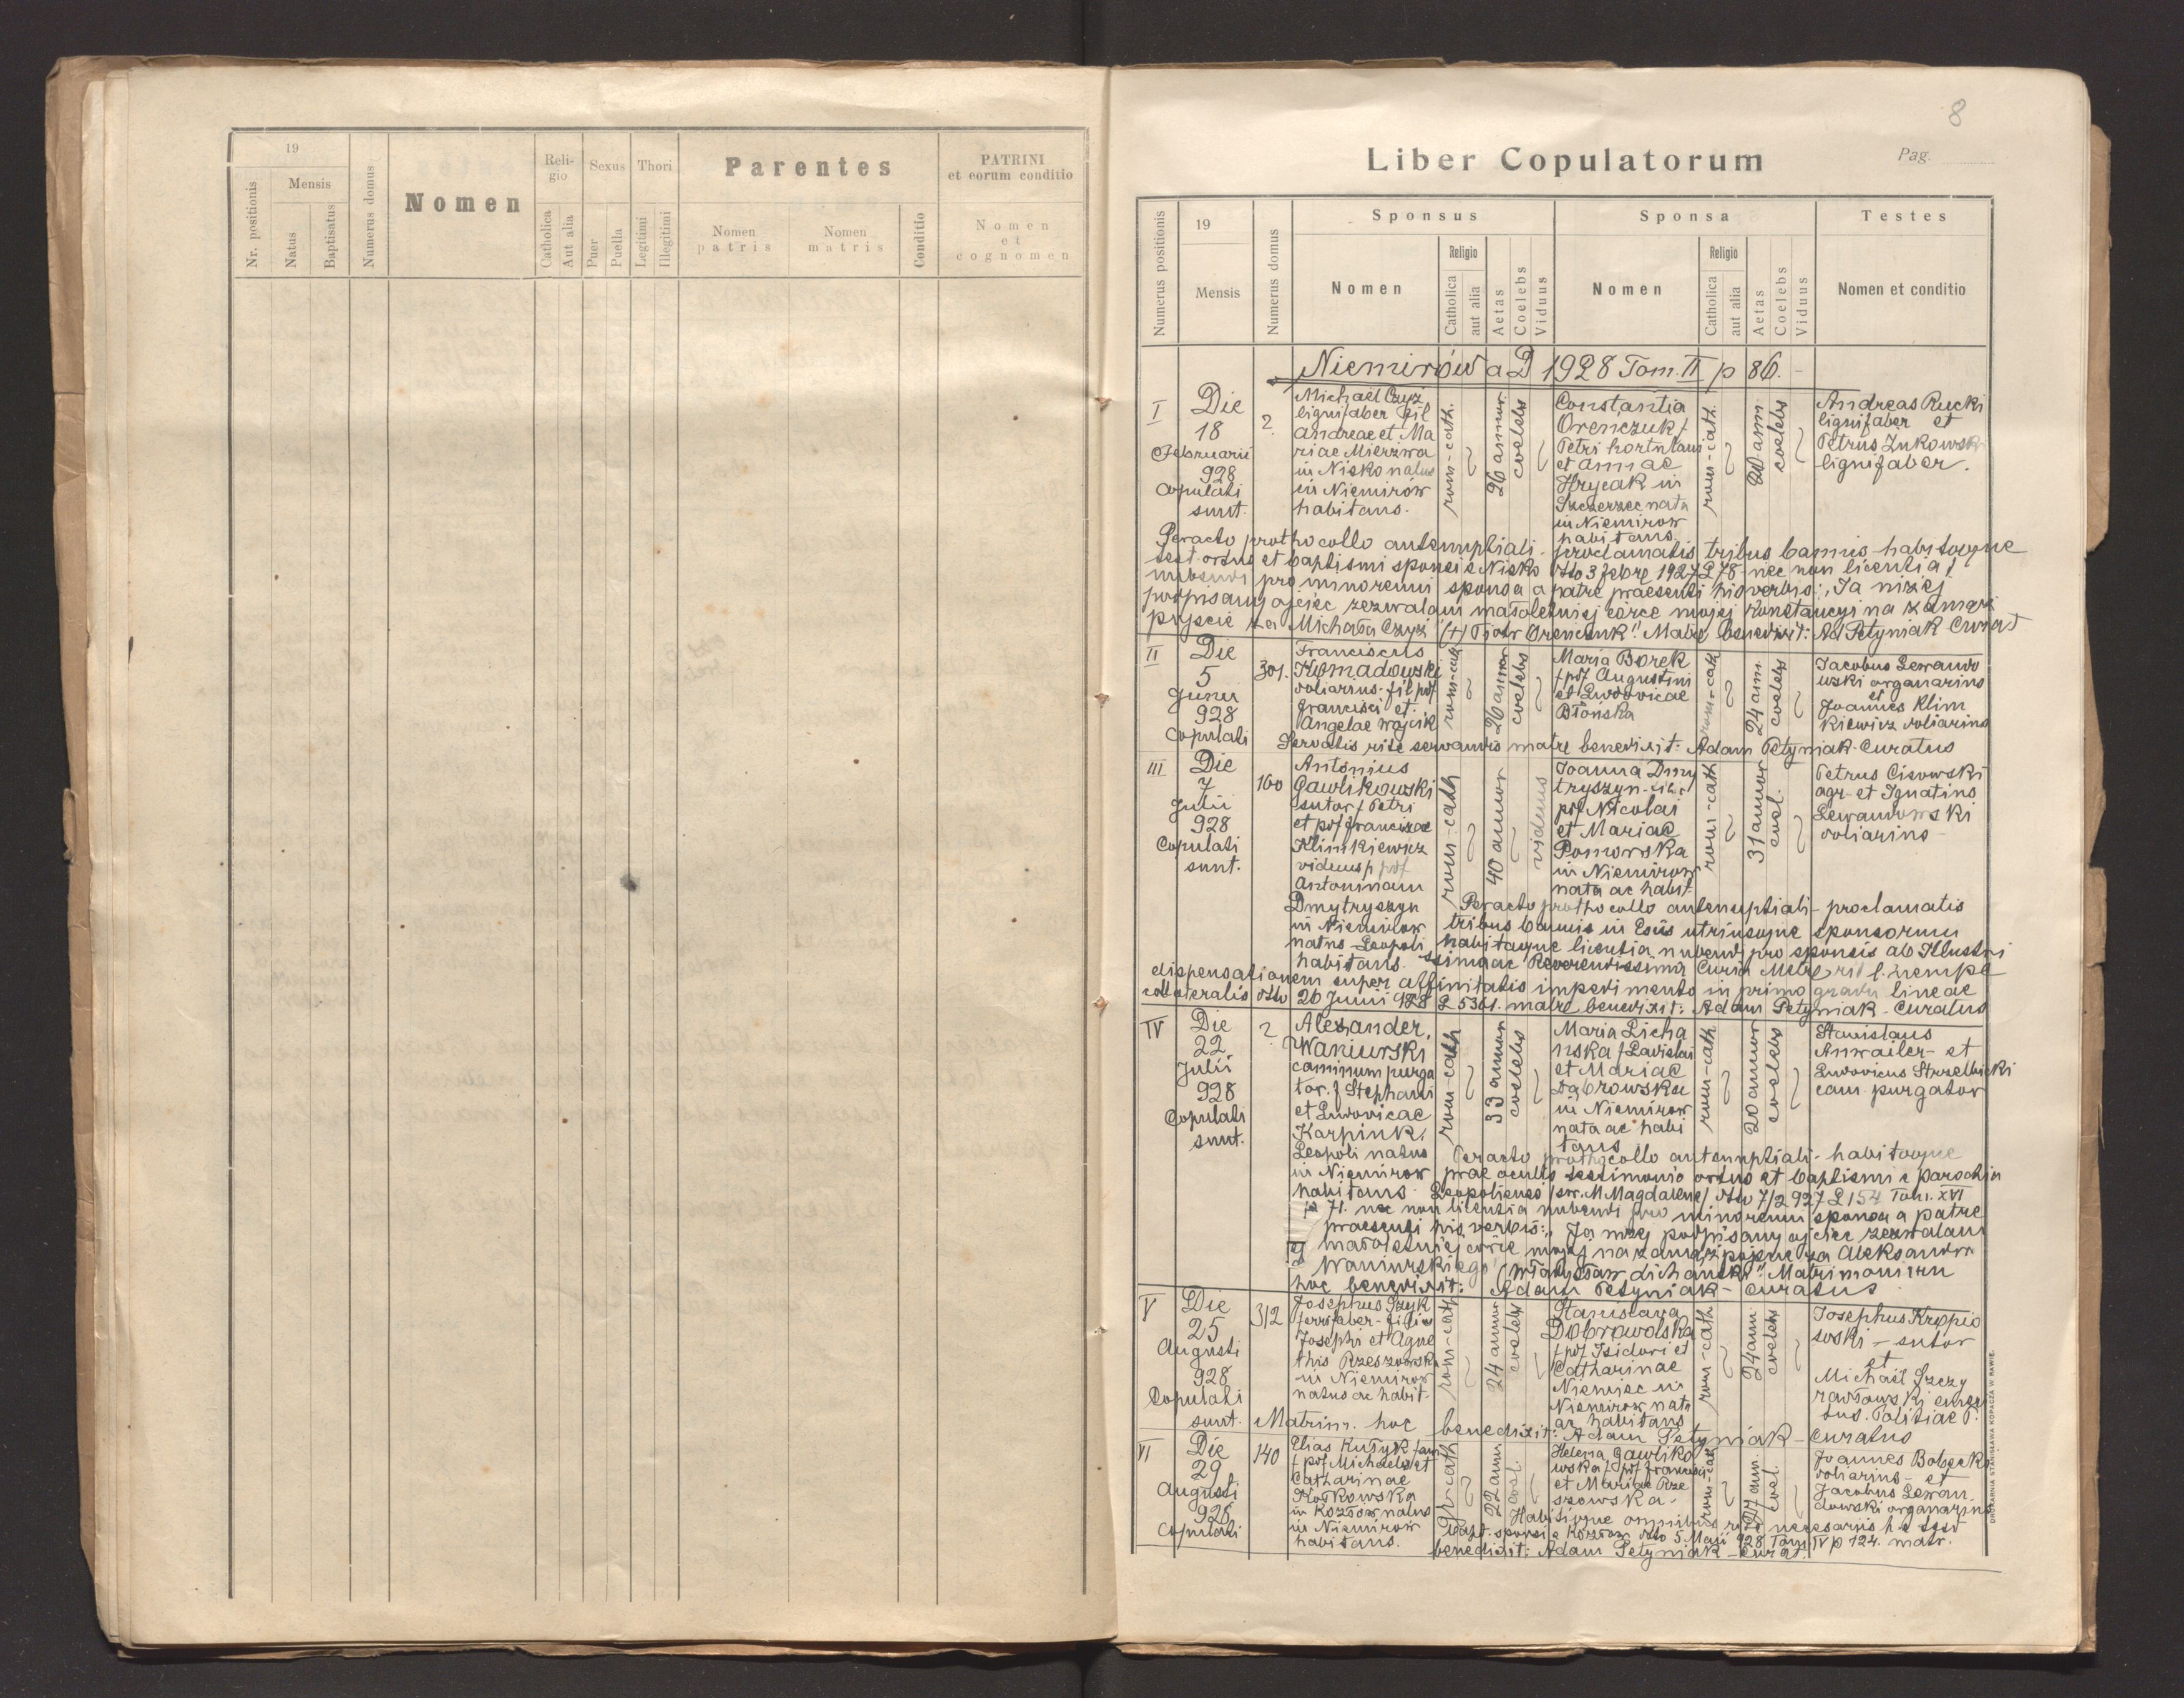 19
Mensis
Nr. positionis
Natus
Baptisatus
Numerus domus
Nomen
Reli-
gio
Catholica
Aut alia
Sexus
Puer
Puella
Thori
Legitimi
Illegitimi
Parentes
Nomen
patris
Nomen
matris
Conditio
PATRINI
et eorum conditio
Nomen
et
cognomen
8
Liber Copulatorum
Pag.
Numerus positionis
19
Mensis
Numerus domus
Sponsus
Nomen
Religio
Catholica
aut alia
Aetas
Coelebs
Viduus
Sponsa
Nomen
Religio
Catholica
aut alia
Aetas
Coelebs
Viduus
Testes
Nomen et conditio
Niemirów a D 1928 Tom. II p 86.-
I
Die
18
Februarii
928
Copulati
sunt.
2
Michaël Czyż
lignifaber fil
Andreae et Ma
riae Mierzwa
in Nisko natus
in Niemirów
habitans.
rom-cath.
26 annor
coelebs
Constantia
Orenczuk f
Petri hortulani
et Annae
Hrycak in
Szczerzec nata
in Niemirow
habitans.
rom-cath.
20 ann
coelebs
Andreas Rucki
lignifaber et
Petrus Żukowski
lignifaber.
Peracto prothocollo antenuptiali - proclamatis tribus bannis habitoque
test. ortus et baptismi sponsi e Nisko dto 3 febr 1927 L 78 nec non licentia
nubendi pro minorenni sponsa a patre praesenti his verbis: „Ja niżej
podpisany ojciec zezwalam małoletniej córce mojej Konstancyi na zamąż
pójscie za Michała Czyż (+) Piotr Orenczuk". Matr. benedixit: Ad Petyniak Curat
II
Die
5
Junii
928
Copulati
301.
Franciscus
Komadowski
doliarius - fil pdf
Francisci et
Angelae Wojcik
rom-cath
26 annor
coelebs
Maria Borek
f pdf Augustini
et Ludovicae
Błońska
rom-cath
24 ann.
coelebs
Jacobus Lewando
wski organarius
et
Joannes Klim
kiewicz doliarius
Servatis rite servandis matr benedixit: Adam Petyniak - Curatus
III
Die
7
Julii
928
Copulati
sunt.
160
Antonius
Gawlikowski
sutor f Petri
et pdf Franciscae
Klimkiewicz
viduus p pdf
Antoninam
Dmytryszyn
in Niemirow
natus Leopoli
habitans.
rom-cath
40 annor
viduus
Joanna Dmy
tryszyn - fil.
pdf Nicolai
et Mariae
Pomorska
in Niemirow
nata ac habit.
rom-cath
31 annor
coel.
Petrus Cisowski
agr- et Ignatius
Lewandowski
doliarius -
Peracto prothocollo antenuptiali - proclamatis
tribus bannis in Esiis utriusque sponsorum
habitaque licentia nubendi pro sponsis ab Illustri
ssima ac Reverendissima Curia Metr rit l. nempe
dispensationem super affinitatis impedimento in primo gradu lineae
collateralis dto 26 Junii 928 L 5361. matr benedixit: Adam Petyniak - Curatus
IV
Die
22
Julii
928
Copulati
sunt.
2
Alexander
Waniurski
caminum purga
tor. f Stephani
et Ludovicae
Karpiuk.
Leopoli natus
in Niemirow
habitans
rom-cath
33 annor
coelebs
Maria Licha
nska f Ladislai
et Mariae
Dąbrowska
in Niemirow
nata ac habi
tans
rom-cath
20 annor
coelebs
Stanislaus
Anwailer - et
Ludovicus Strzelbicki
cam. purgator
Peracto prothocollo antenuptiali - habitoque
prae oculis testimonio ortus et baptismi e parochia
Leopoliensi (sw. M. Magdalene) dto 7/2 927 L 154 Tom. XVI
p 71. nec non licentia nubendi pro minorenni sponsa a patre
praesenti his verbis: „Ja niżej podpisany ojciec zezwalam
małoletniej córce mojej na zamążpójscie za Aleksandra
Waniurskiego (Władysław Lichański". Matrimonium
hoc benedixit: Adam Petyniak - Curatus
V
Die
25
Augusti
928
Copulati
sunt.
312
Josephus Szyk
ferrifaber - filius
Josephi et Agne
this Rzeszowska
in Niemirow
natus ac habit.
rom-cath
24 annor
coelebs
Stanislava
Dobrowolska
f pdf Isidori et
Catharinae
Niemiec in
Niemirow nata
ac habitans
rom-cath
24 ann.
coelebs
Josephus Kropio
wski - sutor
et
Michaël Szczy
rawłowski emeri
tus. Politiae P.
Matrim. hoc benedixit: Adam Petyniak - Curatus
VI
Die
29
Augusti
928
Copulati
140
Elias Kułyk
f pdf Michaelis et
Catharinae
Kołkowska
in Kozłow natus
in Niemirow
habitans.
gr-cath
22 ann
coel.
Helena Gawliko
wska f pdf Francisci
et Mariae Rze
szowska -
rom-cat
27 ann.
coel.
Joannes Bobecki
doliarius - et
Jacobus Lewan
dowski organarius
Habitisque omnibus necesariis h. e test
bapt. sponsi e Kozłow dto 5 Maji 928 Tom IV p 124. matr.
benedixit: Adam Petyniak - Curat.
DRUKARNIA STANISŁAWA KOPACZA W RAWIE.